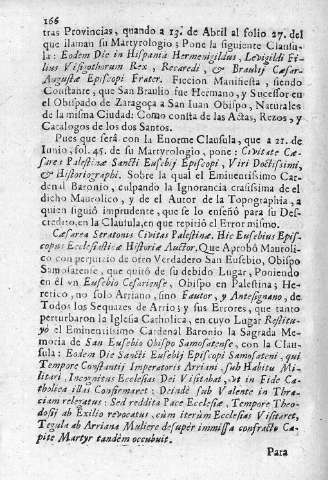 166
tras Provincias, quando a 13. de Abril al folio 27. del
que llaman su Martyrologio; Pone la siguiente Clausu-
la: Eodem Die in Hispania Hermenigildus, Levigildi Fi-
lius Visigothorum Rex, Recaredi, & Braulij Cæsar-
Augustæ Episcopi Frater. Ficcion Manifiesta, siendo
Constante, que San Braulio fue Hermano, y Sucessor en
el Obispado de Zaragoça a San Iuan Obispo, Naturales
de la misma Ciudad: Como consta de las Actas, Rezos, y
Catalogos de los dos Santos.
Pues que será con la Enorme Clausula, que a 21. de
Iunio, fol. 45. de su Martyrologio, pone: Civitate Cæ-
sareæ Palestinæ Sancti Eusebij Episcopi, Viri Doctissimi,
& Historiographi. Sobre la qual el Eminentissimo Car-
denal Baronio, culpando la Ignorancia crasissima de el
dicho Maurolico, y de el Autor de la Topographia, a
quien siguió imprudente, que se lo enseñó para su Des-
credito, en la Clausula, en que repitió el Error mismo.
Cæsarea Stratonis Civitas Palestinæ, Hic Eusebius Epis-
copus Ecclesiasticæ Historiæ Auctor, Que Aprobó Mauroli-
co con perjuicio de otro Verdadero San Eusebio, Obispo
Samosatense, que quitó de su debido Lugar, Poniendo
en él vn Eusebio Cesariense, Obispo en Palestina; He-
retico, no solo Arriano, sino Fautor, y Antesignano, de
Todos los Sequazes de Arrio; y sus Errores, que tanto
perturbaron la Iglesia Catholica, en cuyo Lugar Restitu-
yó el Eminentissimo Cardenal Baronio la Sagrada Me-
moria de San Eusebio Obispo Samosatense, con la Clau-
sula: Eodem Die Sancti Eusebij Episcopi Samosateni, qui
Tempore Constantij Imperatoris Arriani, sub Habitu Mi-
litari, Incognitus Ecclesias Dei Visitabat, vt in Fide Ca-
tholica illas Confirmaret: Deindè sub Valente in Thra-
ciam relegatus: Sed reddita Pace Ecclesiæ, Tempore Theo-
dosij ab Exilio revocatus, cùm iterùm Ecclesias Visitaret,
Tegula ab Arriana Muliere desupèr immissa confracto Ca-
pite Martyr tandèm occubuit.
Para